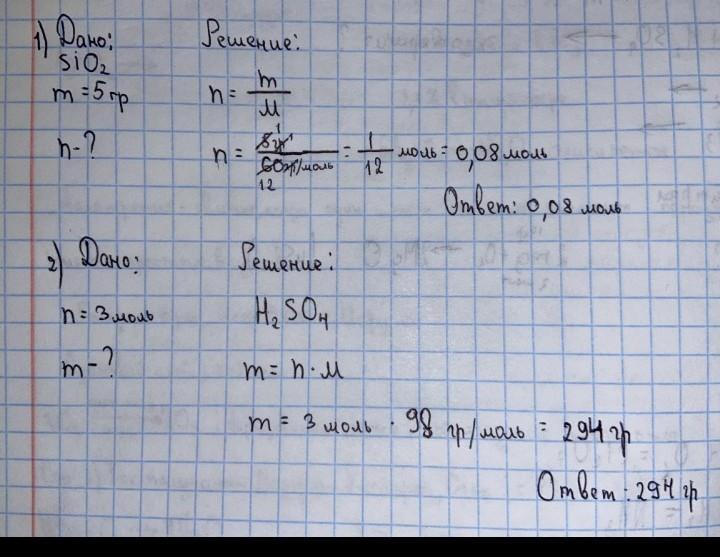 1) Дано:
SiO₂
m = 5 гр
n - ?
Решение:
n = m / M
n = 5 гр 1 / 60 гр/моль 12 = 1/12 моль = 0,08 моль
Ответ: 0,08 моль
2) Дано:
n = 3 моль
m - ?
Решение:
H₂SO₄
m = n · M
m = 3 моль · 98 гр/моль = 294 гр
Ответ: 294 гр